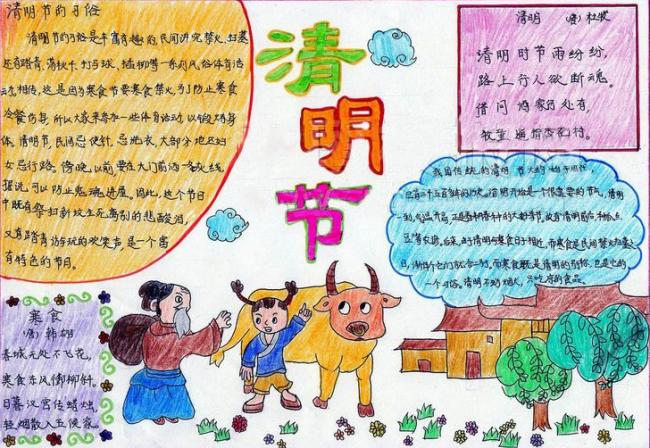 清明节的习俗
清明节的习俗是丰富有趣的,民间讲究禁火、扫墓
还有踏青、荡秋千、打马球、插柳等一系列风俗体育活
动。相传,这是因为寒食节要寒食禁火,为了防止寒食
冷餐伤身,所以大家来参加一些体育活动,以锻炼身
体。清明节,民间忌使针,忌洗衣,大部分地区妇
女忌行路。傍晚以前,要在大门前洒一条灰线,
据说可以防止鬼魂进屋。因此,这个节日
中既有祭扫新坟生死离别的悲酸泪,
又有踏青游玩的欢笑声,是一个富
有特色的节日。
清
明
节
清明 (唐)杜牧
清明时节雨纷纷,
路上行人欲断魂。
借问酒家何处有,
牧童遥指杏花村。
我国传统的清明节大约始于周代,
已有二千五百多年的历史。清明开始是一个很重要的节气,清明
一到,气温升高,正是春耕春种的大好时节,故有清明前后,种瓜点
豆等农谚。后来,由于清明与寒食的日子相近,而寒食是民间禁火扫墓之
日,渐渐
而寒食既是清明的别称,也是
一个习俗。清明不动烟火,只吃凉的食品。
寒食
(唐)韩翃
春城无处不飞花,
寒食东风御柳斜。
日暮汉宫传蜡烛,
轻烟散入五侯家。